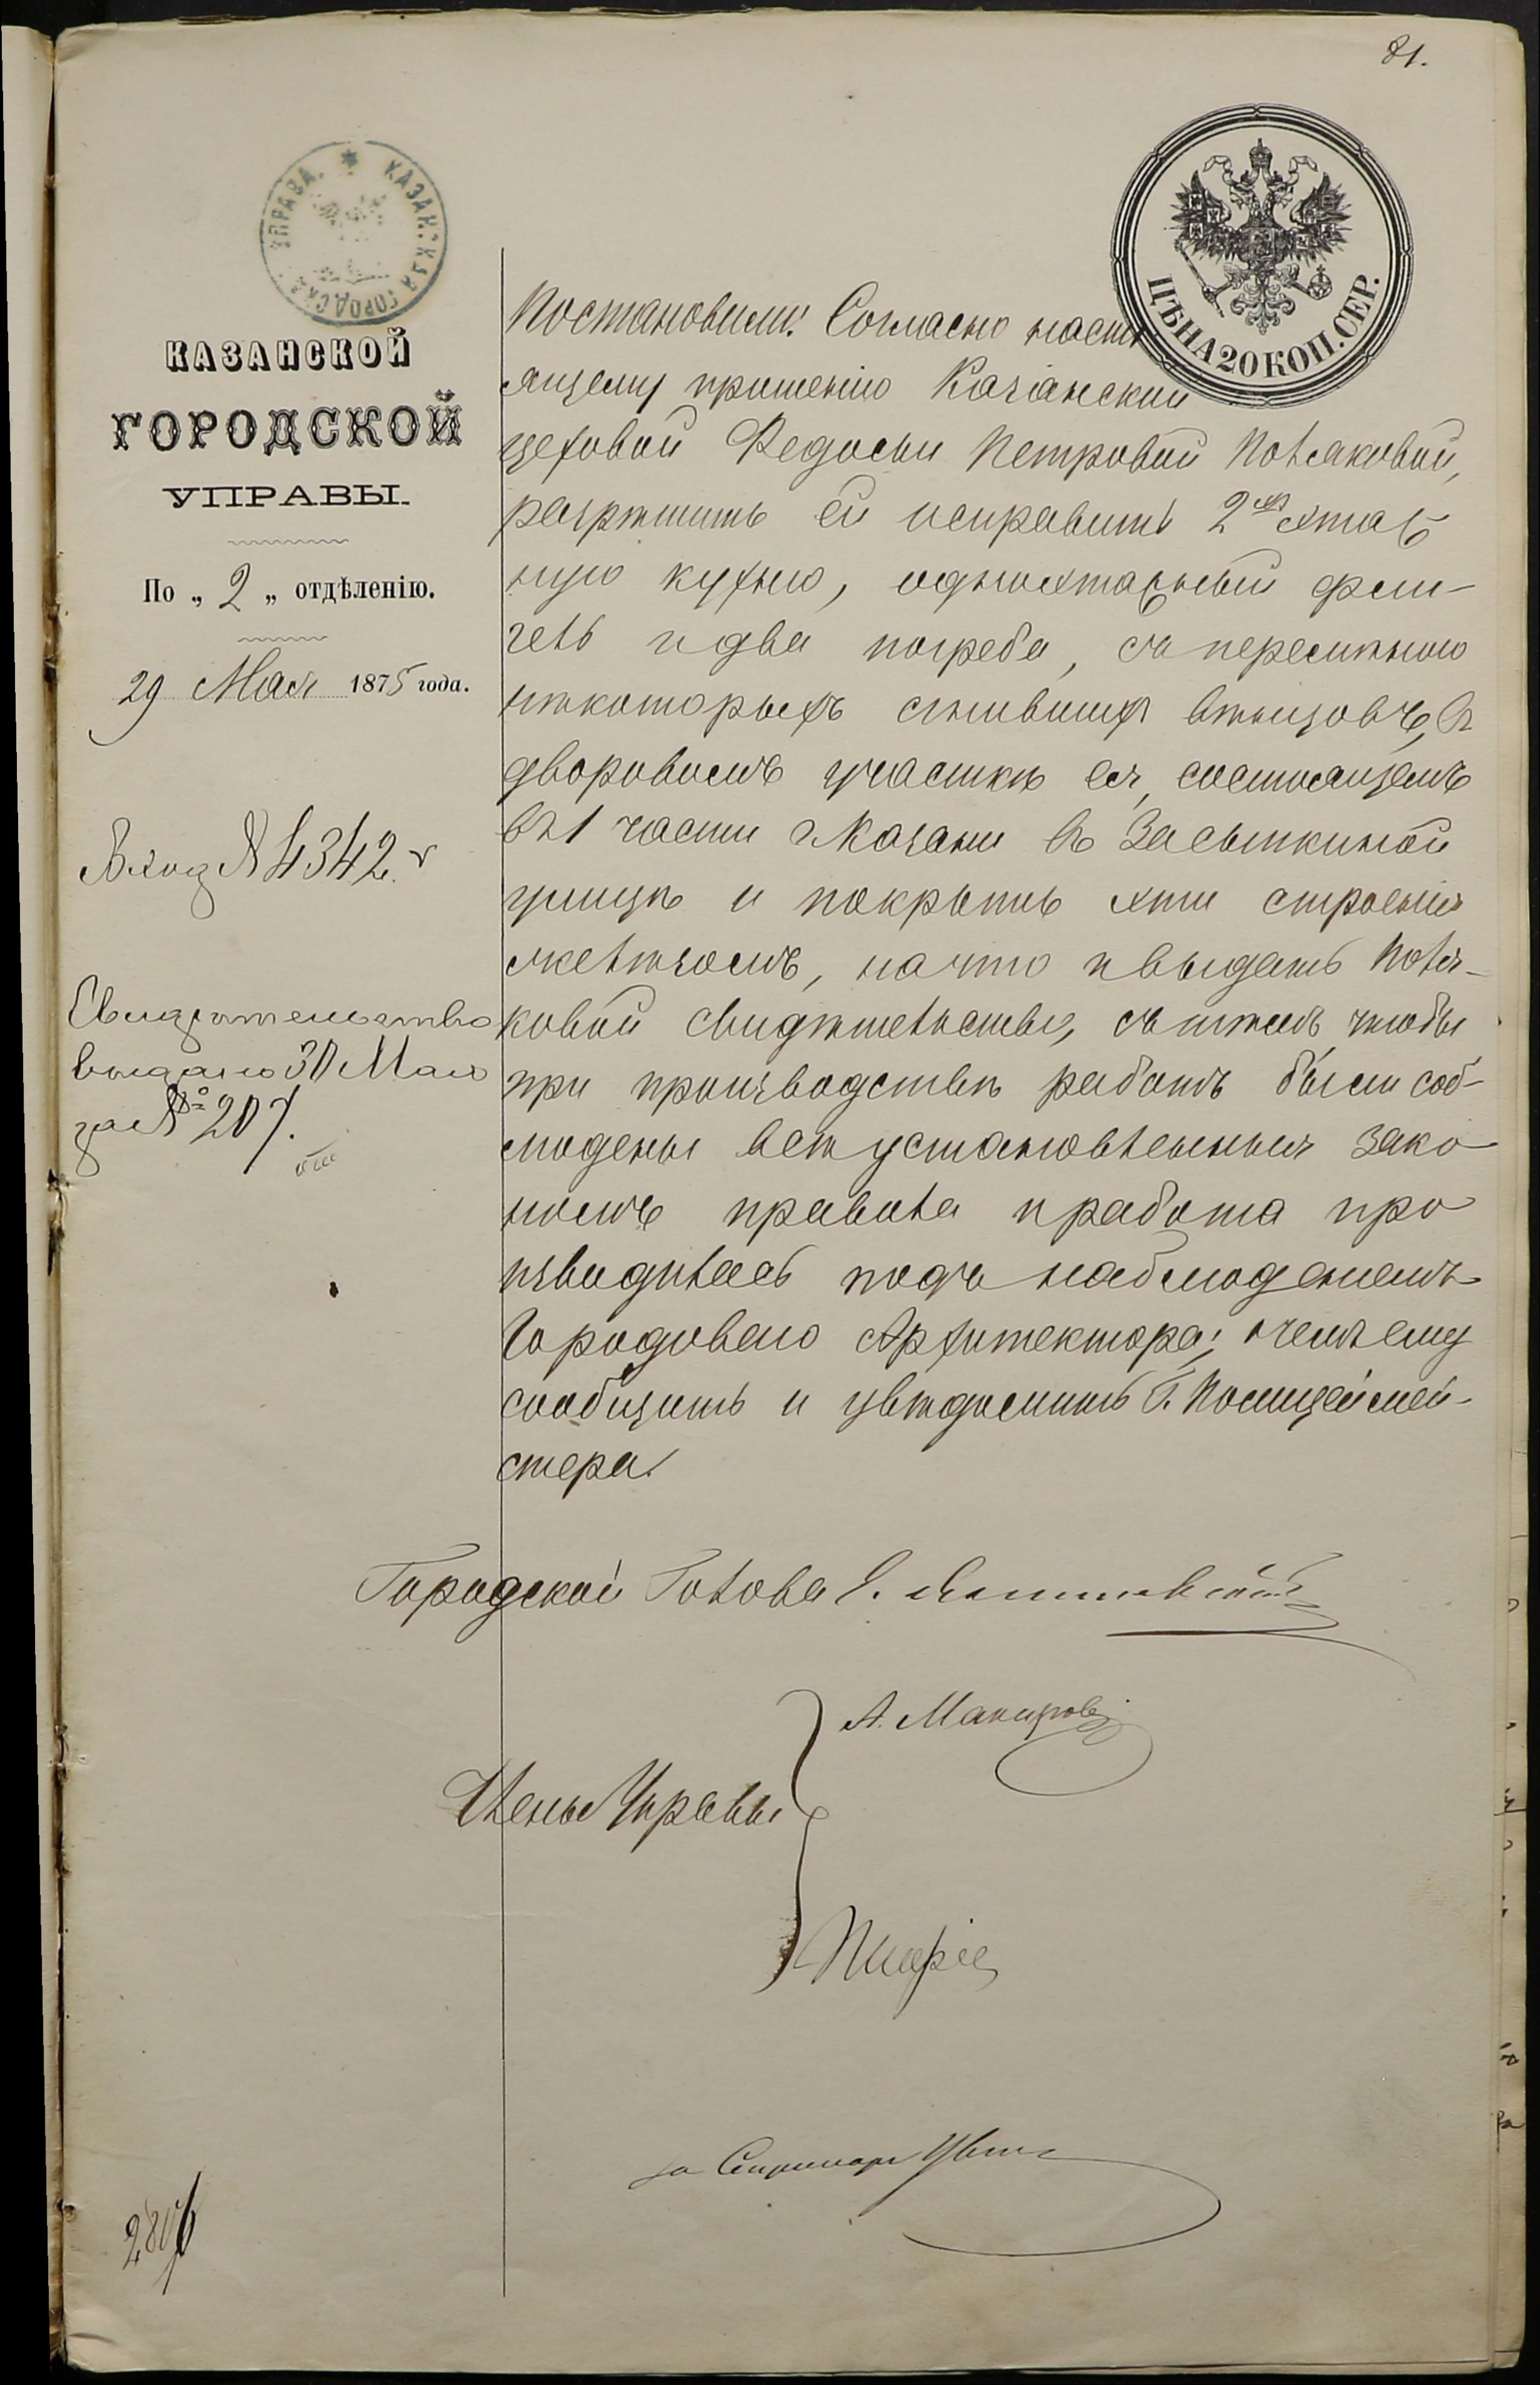 81.
КАЗАНСКАЯ ГОРОДСКАЯ УПРАВА.
ЦѢНА 20 КОП. СЕР.
КАЗАНСКОЙ
ГОРОДСКОЙ
УПРАВЫ.
По „ 2 „ отдѣленію.
29 Мая 1875 года.
Вход № 4342.
Свидѣтельство
выдано 30 Мая
за № 207.
Постановили: Согласно насто
ящему прошенію Казанской
цеховой Федосьи Петровой Поляковой,
разрѣшить ей исправить 2хъ этаж
ную кухню, одноэтажный фли-
гель и два погреба, съ перемѣною
нѣкоторыхъ сгнившихъ вѣнцовъ, въ
дворовомъ участкѣ ея, состоящемъ
въ 1 части г. Казани въ Засыпкиной
улицѣ и покрыть эти строенія
желѣзомъ, на что и выдать Поля-
ковой свидѣтельство, съ тѣмъ, чтобы
при производствѣ работъ были соб-
людены всѣ установленныя зако
номъ правила и работа про
изводилась подъ наблюденіемъ
Городоваго Архитектора; о чемъ ему
сообщить и увѣдомить Г. Полицеймей-
стера.
Городской Голова Э. Янишевскій
А. Макаровъ
Члены Управы
за Секретаря